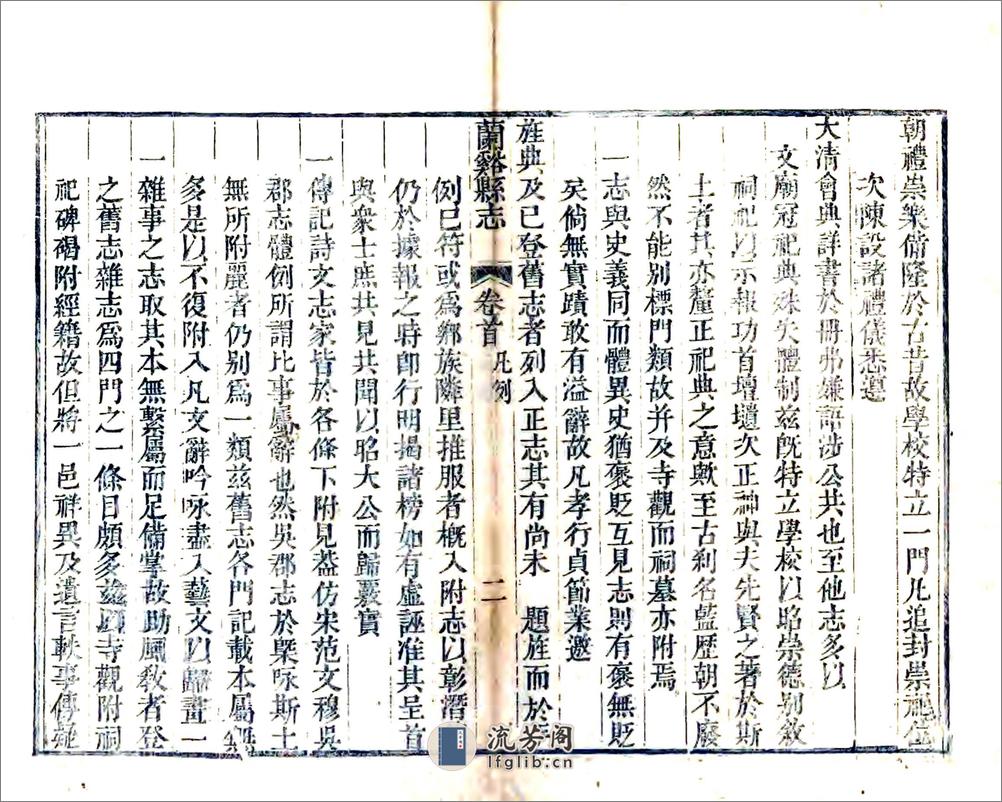 朝禮崇樂備隆於古昔故學校特立一門凡追封崇祀位
次陳設諸禮儀悉遵
大清會典詳書於冊弗嫌語涉公共也至他志多以
文廟冠祀典殊失體制茲既特立學校以昭崇德別敘
祠祀以示報功首壇壝次正神與夫先賢之著於斯
土者其亦釐正祀典之意歟至古刹名藍歷朝不廢
然不能别標門類故并及寺觀而祠墓亦附焉
一志與史義同而體異史猶褒貶互見志則有褒無貶
矣倘無實蹟敢有溢辭故凡孝行貞節業邀
旌典及已登舊志者列入正志其有尚未　題旌而於
蘭谿縣志　卷首　凡例　二
例已符或爲鄉族隣里推服者概入附志以彰潛
仍於據報之時卽行明揭諸榜如有虛誣准其呈首
與衆士庶共見共聞以昭大公而歸覈實
一傳記詩文志家皆於各條下附見葢仿宋范文穆吳
郡志體例所謂比事屬辭也然吳郡志於槩咏斯土
無所附麗者仍别爲一類茲舊志各門記載本屬無
多是以不復附入凡文辭吟咏盡入藝文以歸畫一
一雜事之志取其本無繫屬而足備掌故助風敎者登
之舊志雜志爲四門之一條目頗多茲以寺觀附祠
祀碑碣附經籍故但將一邑祥異及遺言軼事傳疑
流芳阁
lfglib.cn